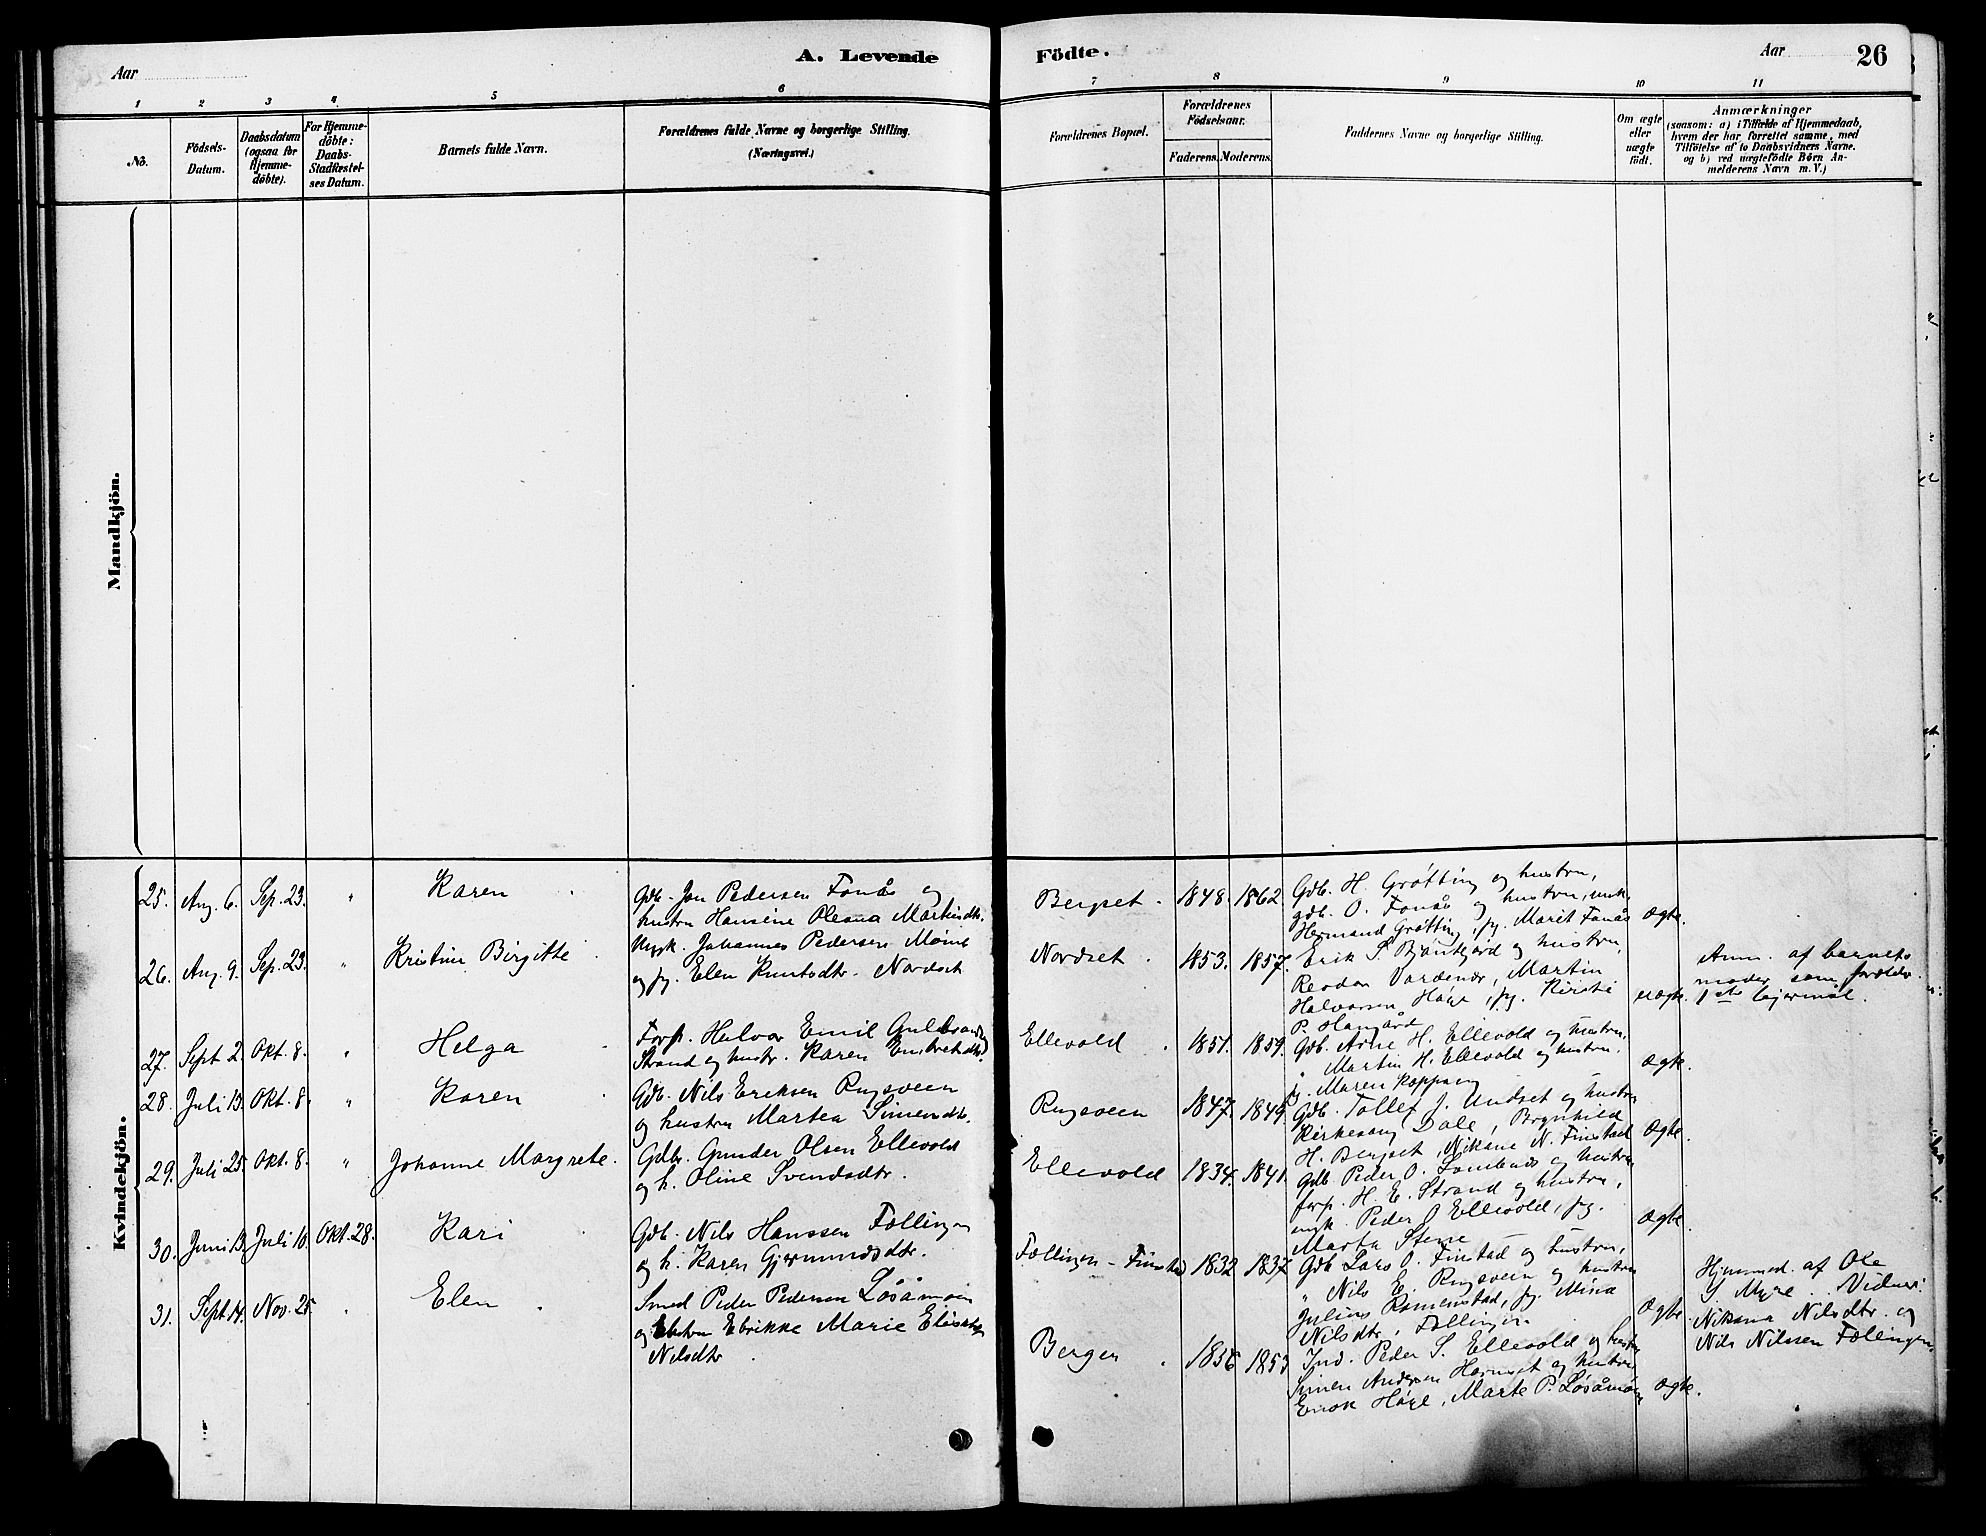 Aar
A. Levende
Födte.
Aar
26
1 2 3 4 5 6 7 8 9 10 11
No.
Födsels-
Datum.
Daabsdatum
(ogsaa for
Hjemme-
döbte).
For Hjemme-
döbte:
Daabs-
Stadfæstel-
ses Datum.
Barnets fulde Navn.
Forældrenes fulde Navne og borgerlige Stilling.
(Næringsvei.)
Forældrenes Bopæl.
Forældrenes
Födselsaar.
Faderens. Moderens.
Faddernes Navne og borgerlige Stilling.
Om ægte
eller
uægte
födt.
Anmærkninger
(saasom: a) i Tilfælde af Hjemmedaab,
hvem der har forrettet samme, med
Tilföielse af to Daabsvidners Navne.
og b) ved uægtefödte Börn An-
melderens Navn m. V.)
Mandkjön.
Kvindekjön.
25. Aug. 6. Sep. 23. " Karen
Gdb. Jon Pedersen Fonås og
hustru Hansine Oleana Martinsdtr.
Berset. 1848. 1862.
Gdb. H. Grøtting og hustru,
gdb. O. Fonås og hustru, ungk.
Hermand Grøtting, pg. Marit Fonås
Ægte.
26. Aug. 9. Sep. 23. " Kristine Birgitte
Ungk. Johannes Pedersen Moine
og pg. Elen Knutsdtr. Nordset
Nordset. 1853. 1857.
Erik S. og hustru,
Martin
Halvorsen Høge, pg. Kirsti
P. Hangård
uægte.
Anm. af barnets
moder som forældr.
1ste lejermål.
27. Sept. 2. Okt. 8. " Helga
Forp. Halvor Emil Guldbrands
Strand og hustr. Karen Embretsdtr.
Ellevold. 1851. 1859.
Gdb. Arne H. Ellevold og hustru,
" Martin H. Ellevold og hustru.
pg. Maren Koppang
Ægte.
28. Juli 13. Okt. 8. " Karen
Gdb. Nils Eriksen Rugsveen
og hustru Martea Simensdtr.
Rugsveen 1847. 1849.
Gdb. Tollef J. Undset og hustru
Kirkesang. Dale, Brynhild
H. Berset, Nikane N. Finstad
Ægte.
29. Juli 25. Okt. 8. " Johanne Margrete.
Gdbr. Gunder Olsen Ellevold
og h. Oline Svendsdtr.
Ellevold 1834. 1841.
Gdb. Peder O. og hustru
forp. H. E. Strand og hustru,
ungk. Peder O Ellevold, pg.
Marta Stene
Ægte.
30. Juni 13. Juli 10. Okt. 28. Kari
Gdb. Nils Hanssen Follingen
og h. Karen Gjermundsdtr.
Follingen - Finstad 1832 1837
Gdb Lars O. Finstad og hustru,
" Nils E. Rugsveen og hustru
Julius Romenstad, pg. Mina
Nilsdtr. Follingen
Ægte.
Hjemmed. af Ole
Myre. Vidner:
Nikana Nilsdtr. og
Nils Nilssen Follingen.
31. Sept. 14. Nov. 25. " Elen
Smed Peder Pedersen Løsåmoen
og hustru Ebrikke Marie
Nilsdtr.
Berger. 1856 1853
Ind. Peder S. Ellevold og hustru
Simen Andersen Hornset og hustru
Enok Høge, Marte P. Løsåmoen
Ægte.